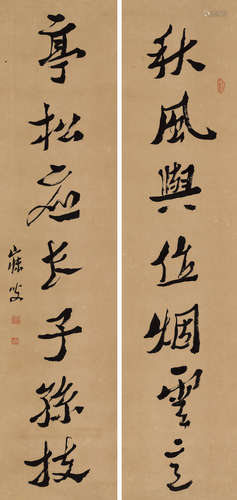 秋風與位烟雲意
亭松應長子孫枝
寐叟